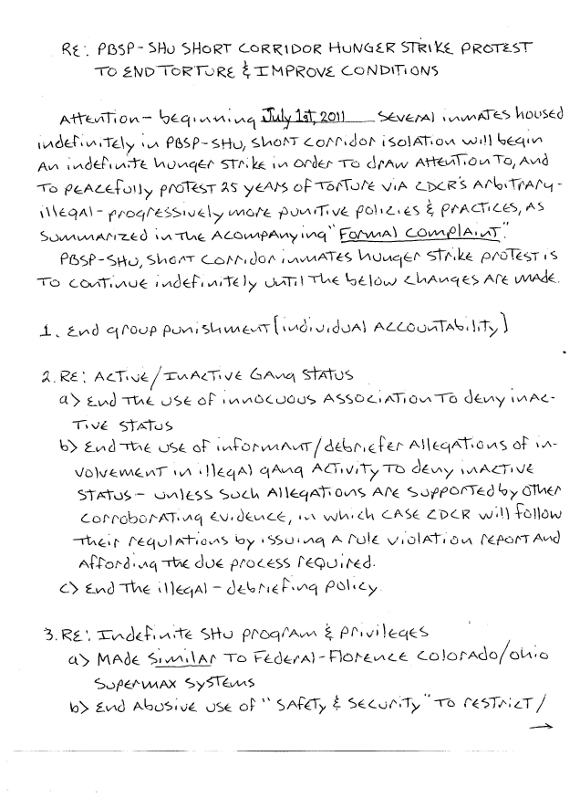 RE: PBSP-SHU SHORT CORRIDOR HUNGER STRIKE PROTEST
TO END TORTURE & IMPROVE CONDITIONS
Attention- beginning July 1st, 2011 SEVERAL inmates housed
indefinitely in PBSP-SHU, Short corridor isolation will begin
An indefinite hunger strike in order to draw attention to, and
to peacefully protest 25 years of torture via CDCR's Arbitrary-
illegal-progressively more punitive policies & practices, as
summarized in the acompanying "Formal Complaint."
PBSP-SHU, Short corridor inmates hunger strike protest is
to continue indefinitely until the below changes are made.
1. End group punishment [individual accountability]
2. RE: Active/Inactive Gang Status
a) End the use of innocuous association to deny inac-
tive status
b) End the use of informant/debriefer allegations of in-
volvement in illegal gang activity to deny inactive
status- unless such allegations are supported by other
corroborating evidence, in which case CDCR will follow
their regulations by issuing a rule violation report and
affording the due process required.
c) End the illegal-debriefing policy
3. RE: Indefinite SHU program & privileges
a) Made Similar to Federal-Florence Colorado/Ohio
Supermax systems
b) End abusive use of "safety & security" to restrict/
→